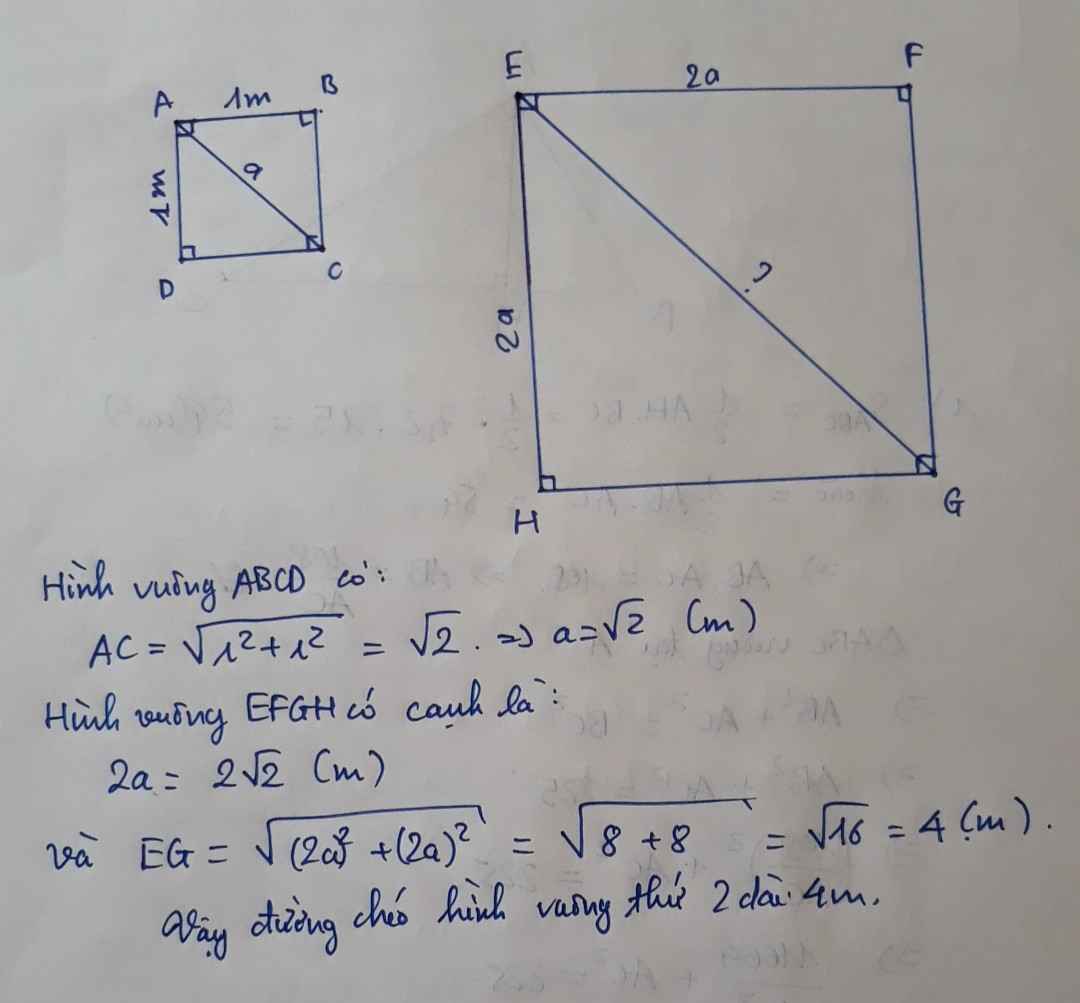 A 1m B
1m
a
D C
E 2a F
2a
?
H G
Hình vuông ABCD có:
AC = √(1² + 1²) = √2. => a = √2 (m)
Hình vuông EFGH có cạnh là:
2a = 2√2 (m)
và EG = √((2a)² + (2a)²) = √(8 + 8) = √16 = 4 (m).
Vậy đường chéo hình vuông thứ 2 dài 4m.